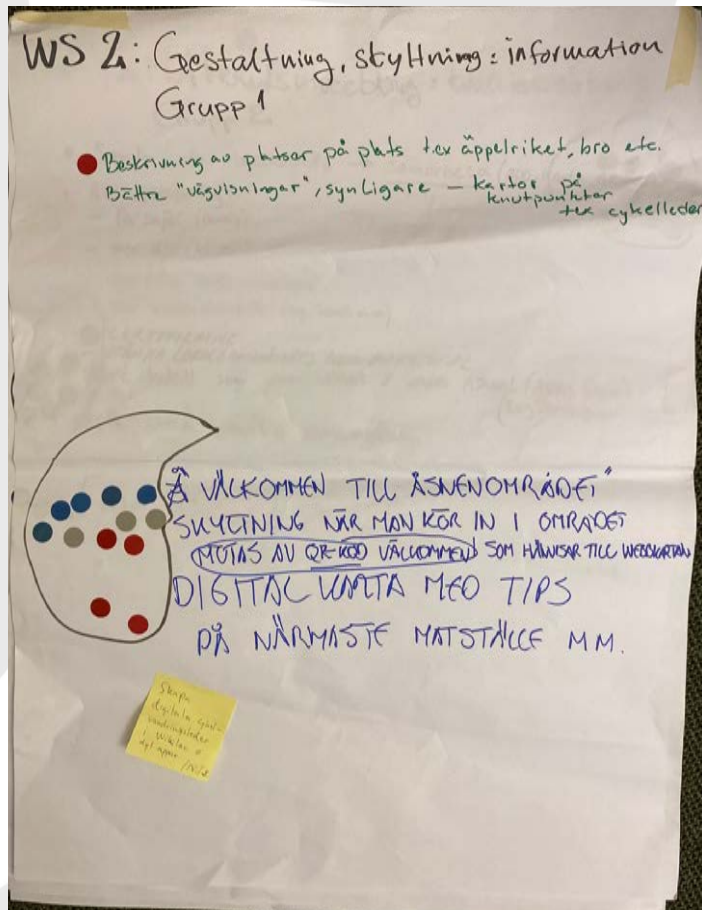 WS 2: Gestaltning, skyltning : information
Grupp 1
Beskrivning av platser på plats tex äppelriket, bro etc.
Bättre "vägvisningar", synligare – kartor på
knutpunkter
tex cykelleder
VÄLKOMMEN TILL ÅSNENOMRÅDET"
SKYLTNING NÄR MAN KÖR IN I OMRÅDET
MÖTAS AV QR-KOD VÄLKOMMEN SOM HÄNVISAR TILL WEBBKARTAN
DIGITAL KARTA MED TIPS
PÅ NÄRMASTE MATSTÄLLE MM.
Skapa
digitala
vandringsleder
i